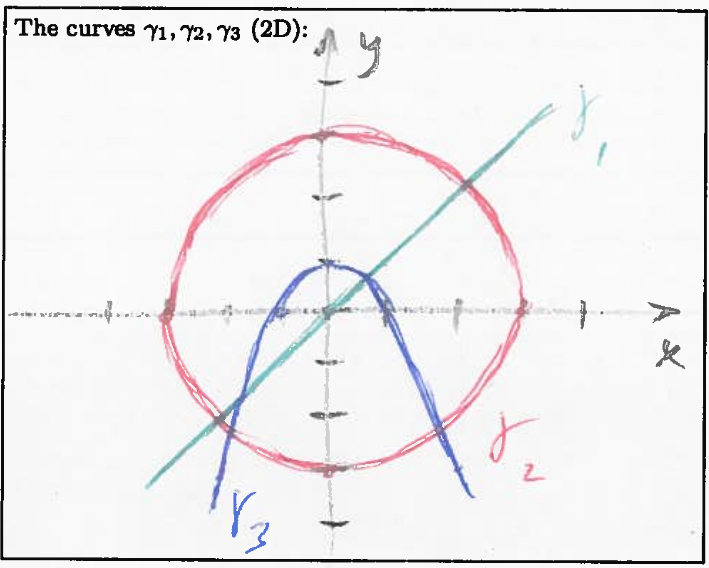 The curves γ₁, γ₂, γ₃ (2D):
y
γ₁
x
γ₂
γ₃